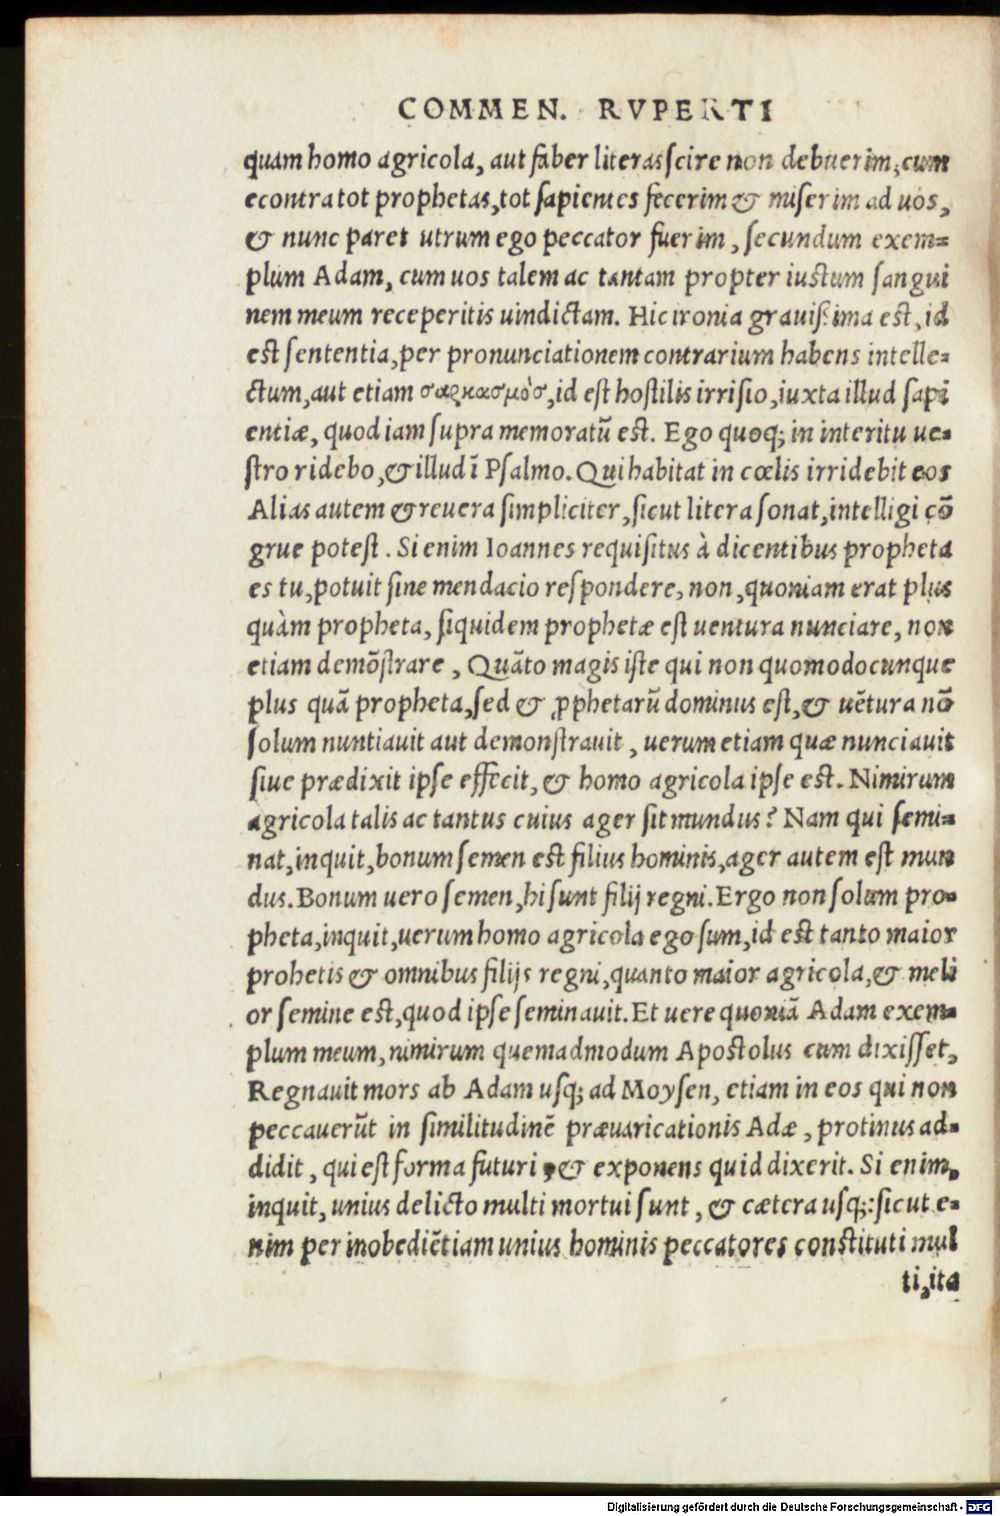 COMMEN. RVPERTI
quam homo agricola, aut faber literas scire non debuerim, cum
econtra tot prophetas, tot sapientes fecerim & miserim ad uos,
& nunc paret utrum ego peccator fuerim, secundum exem-
plum Adam, cum uos talem ac tantam propter iustum sangui
nem meum receperitis uindictam. Hic ironia grauissima est, id
est sententia, per pronunciationem contrarium habens intelle-
ctum, aut etiam σαρκασμὸσ, id est hostilis irrisio, iuxta illud sapi
entiæ, quod iam supra memoratū est. Ego quoq; in interitu ue-
stro ridebo, & illud ī Psalmo. Qui habitat in cœlis irridebit eos
Alias autem & reuera simpliciter, sicut litera sonat, intelligi cō
grue potest. Si enim Ioannes requisitus à dicentibus propheta
es tu, potuit sine mendacio respondere, non, quoniam erat plus
quàm propheta, siquidem prophetæ est uentura nunciare, non
etiam demōstrare, Quāto magis iste qui non quomodocunque
plus quā propheta, sed & ꝓphetarū dominus est, & uētura nō
solum nuntiauit aut demonstrauit, uerum etiam quæ nunciauit
siue prædixit ipse effecit, & homo agricola ipse est. Nimirum
agricola talis ac tantus cuius ager sit mundus? Nam qui semi-
nat, inquit, bonum semen est filius hominis, ager autem est mun
dus. Bonum uero semen, hi sunt filij regni. Ergo non solum pro-
pheta, inquit, uerum homo agricola ego sum, id est tanto maior
prohetis & omnibus filijs regni, quanto maior agricola, & meli
or semine est, quod ipse seminauit. Et uere quoniā Adam exem-
plum meum, nimirum quemadmodum Apostolus cum dixisset,
Regnauit mors ab Adam usq; ad Moysen, etiam in eos qui non
peccauerūt in similitudinē præuaricationis Adæ, protinus ad-
didit, qui est forma futuri, & exponens quid dixerit. Si enim,
inquit, unius delicto multi mortui sunt, & cætera usq;: sicut e-
nim per inobediētiam unius hominis peccatores constituti mul
ti, ita
Digitalisierung gefördert durch die Deutsche Forschungsgemeinschaft - DFG